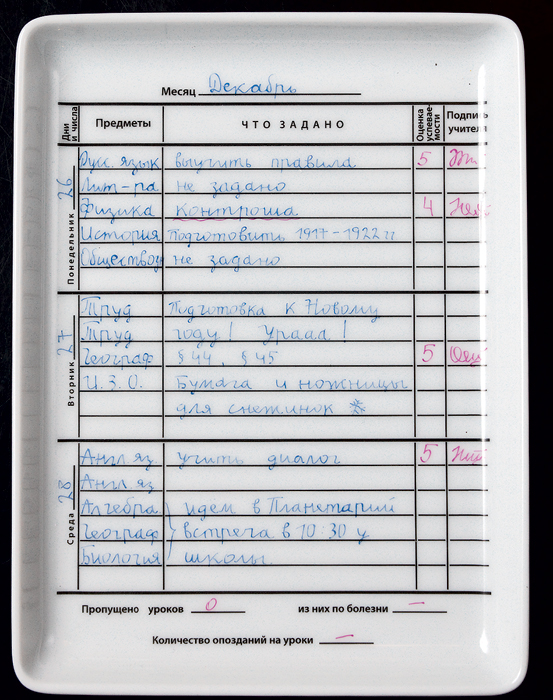 Месяц Декабрь
Дни и числа Предметы ЧТО ЗАДАНО Оценка успевае-мости Подпись учителя
Понедельник 26
Русс. язык выучить правила 5
Лит-ра не задано
Физика контроша 4
История подготовить 1917-1922 гг
Обществоз не задано
Вторник 27
Труд Подготовка к Новому
Труд году! Урааа!
Географ § 44, § 45 5
И.З.О. Бумага и ножницы
для снежинок
Среда 28
Англ яз учить диалог 5
Англ яз
Алгебра идем в Планетарий
Географ встреча в 10:30 у
Биология школы.
Пропущено уроков 0 из них по болезни —
Количество опозданий на уроки —